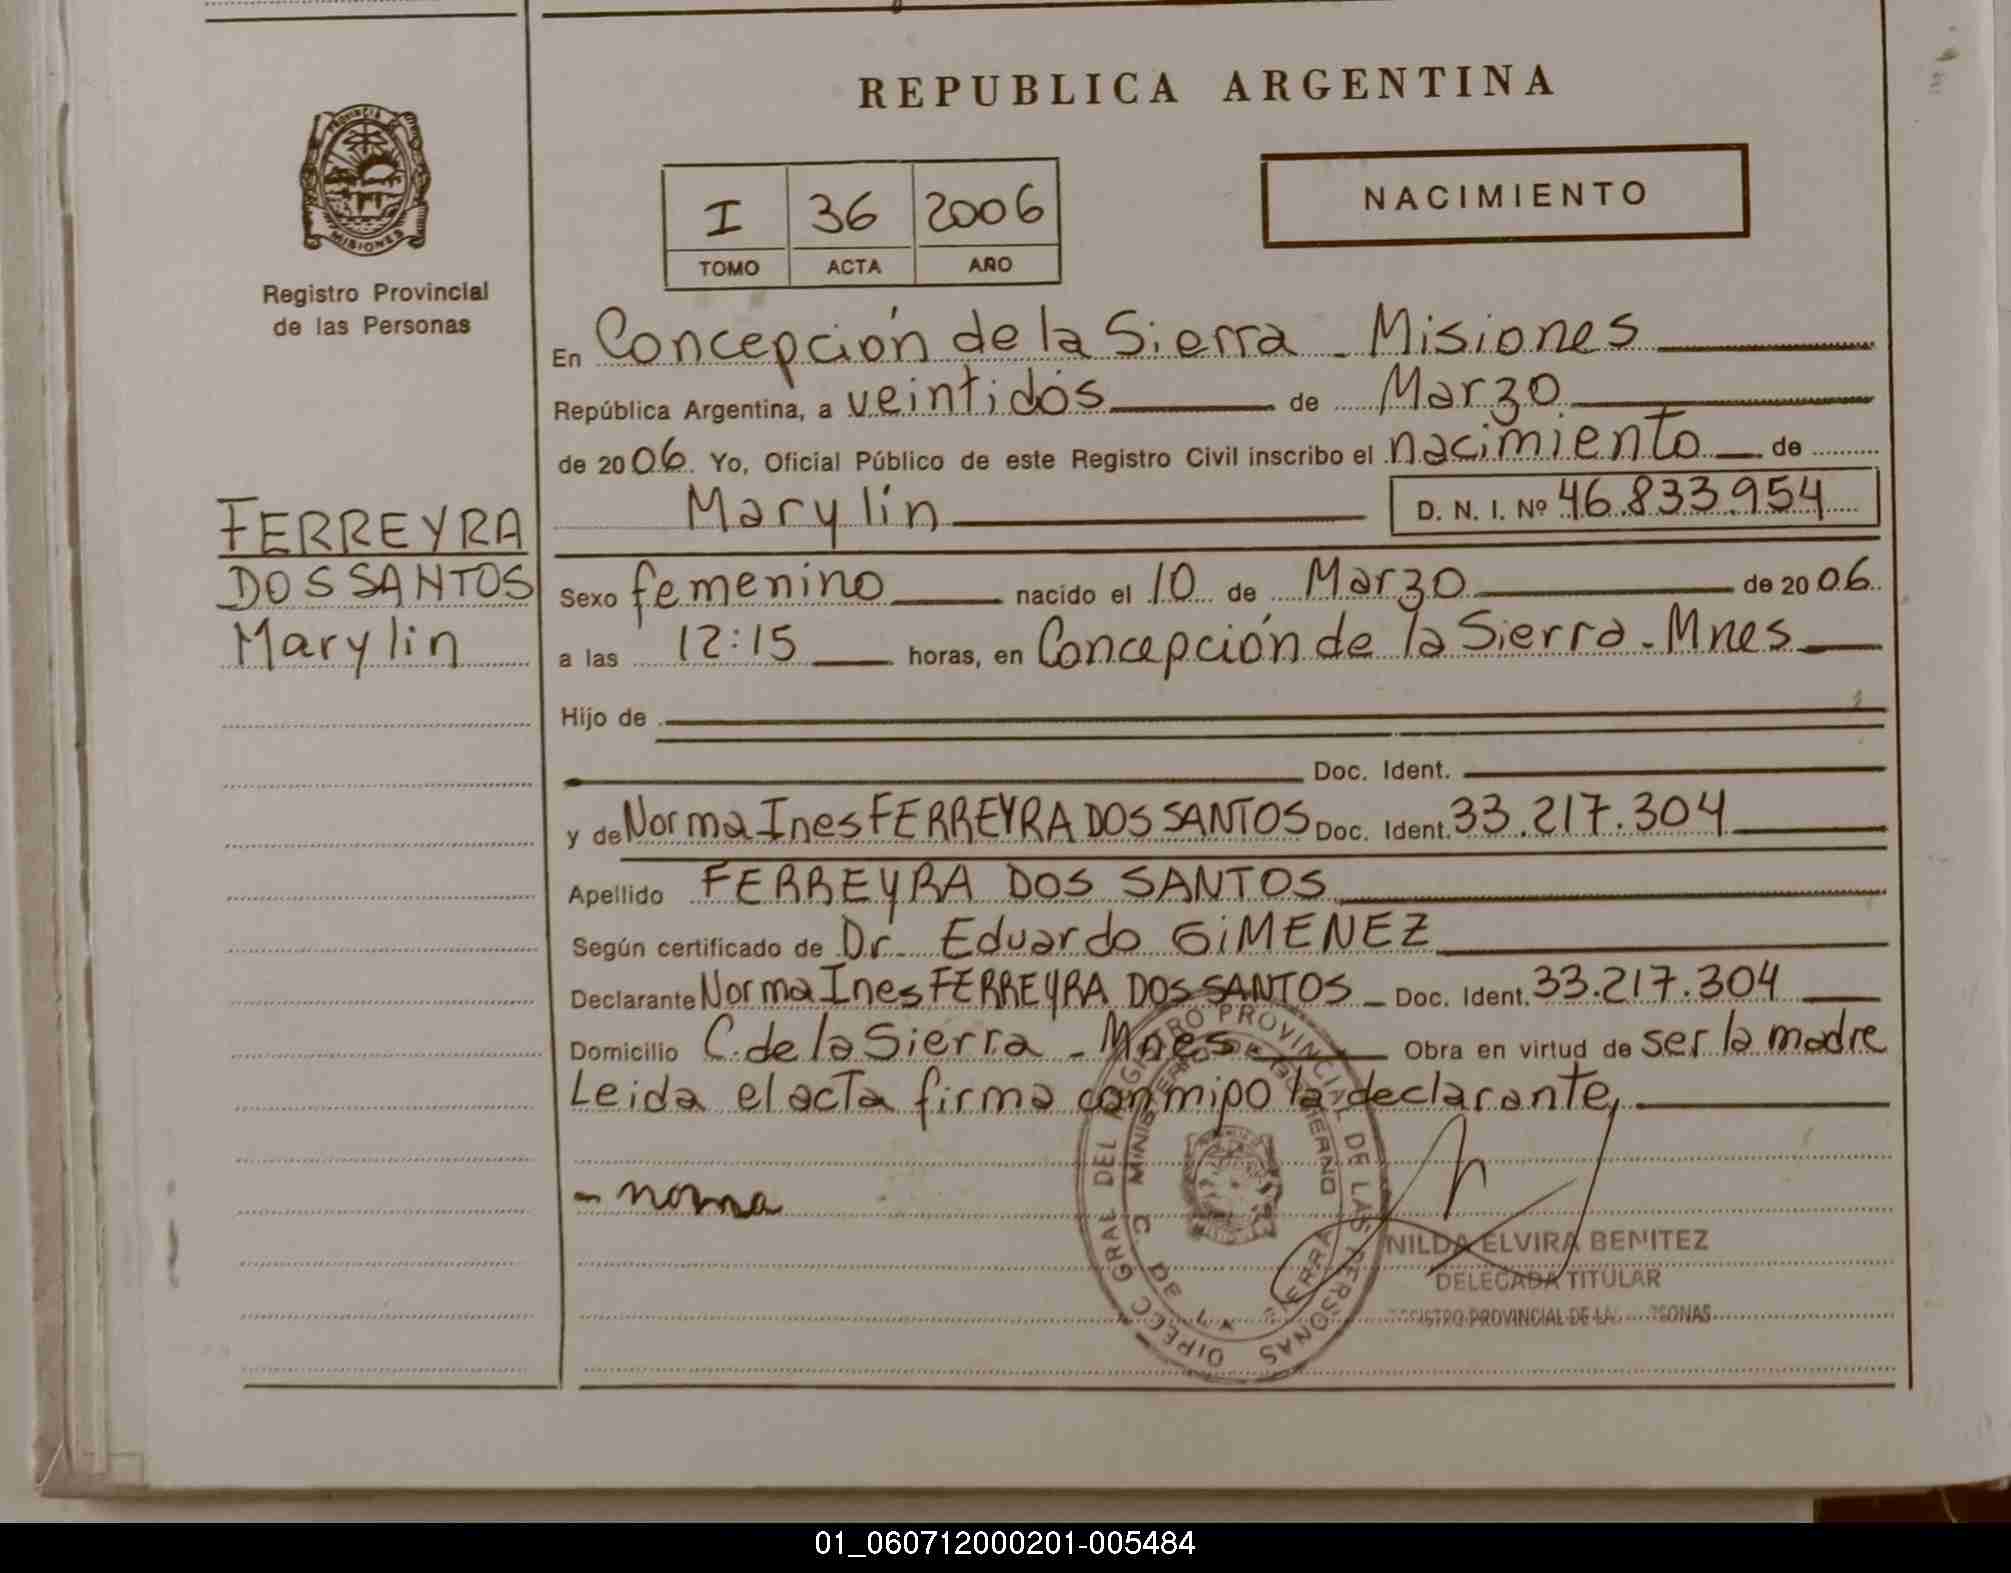 REPUBLICA ARGENTINA
PROVINCIA DE
MISIONES
Registro Provincial
de las Personas
NACIMIENTO
I 36 2006
TOMO ACTA AÑO
En Concepción de la Sierra - Misiones
República Argentina, a veintidós de Marzo
de 2006. Yo, Oficial Público de este Registro Civil inscribo el nacimiento de
Marylin D. N. I. Nº 46.833.954
FERREYRA
DOS SANTOS
Marylin
Sexo femenino nacido el 10 de Marzo de 2006.
a las 12:15 horas, en Concepción de la Sierra - Mnes
Hijo de
Doc. Ident.
y de Norma Ines FERREYRA DOS SANTOS Doc. Ident. 33.217.304
Apellido FERREYRA DOS SANTOS
Según certificado de Dr. Eduardo GIMENEZ
Declarante Norma Ines FERREYRA DOS SANTOS - Doc. Ident. 33.217.304
Domicilio C. de la Sierra - Mnes Obra en virtud de ser la madre
Leida el acta firma conmigo la declarante,
- norma
DIRECC GRAL DEL REGISTRO PROVINCIAL DE LAS PERSONAS
MINISTERIO DE GOBIERNO
C. DE LA SIERRA
NILDA ELVIRA BENITEZ
DELEGADA TITULAR
REGISTRO PROVINCIAL DE LAS PERSONAS
01_060712000201-005484